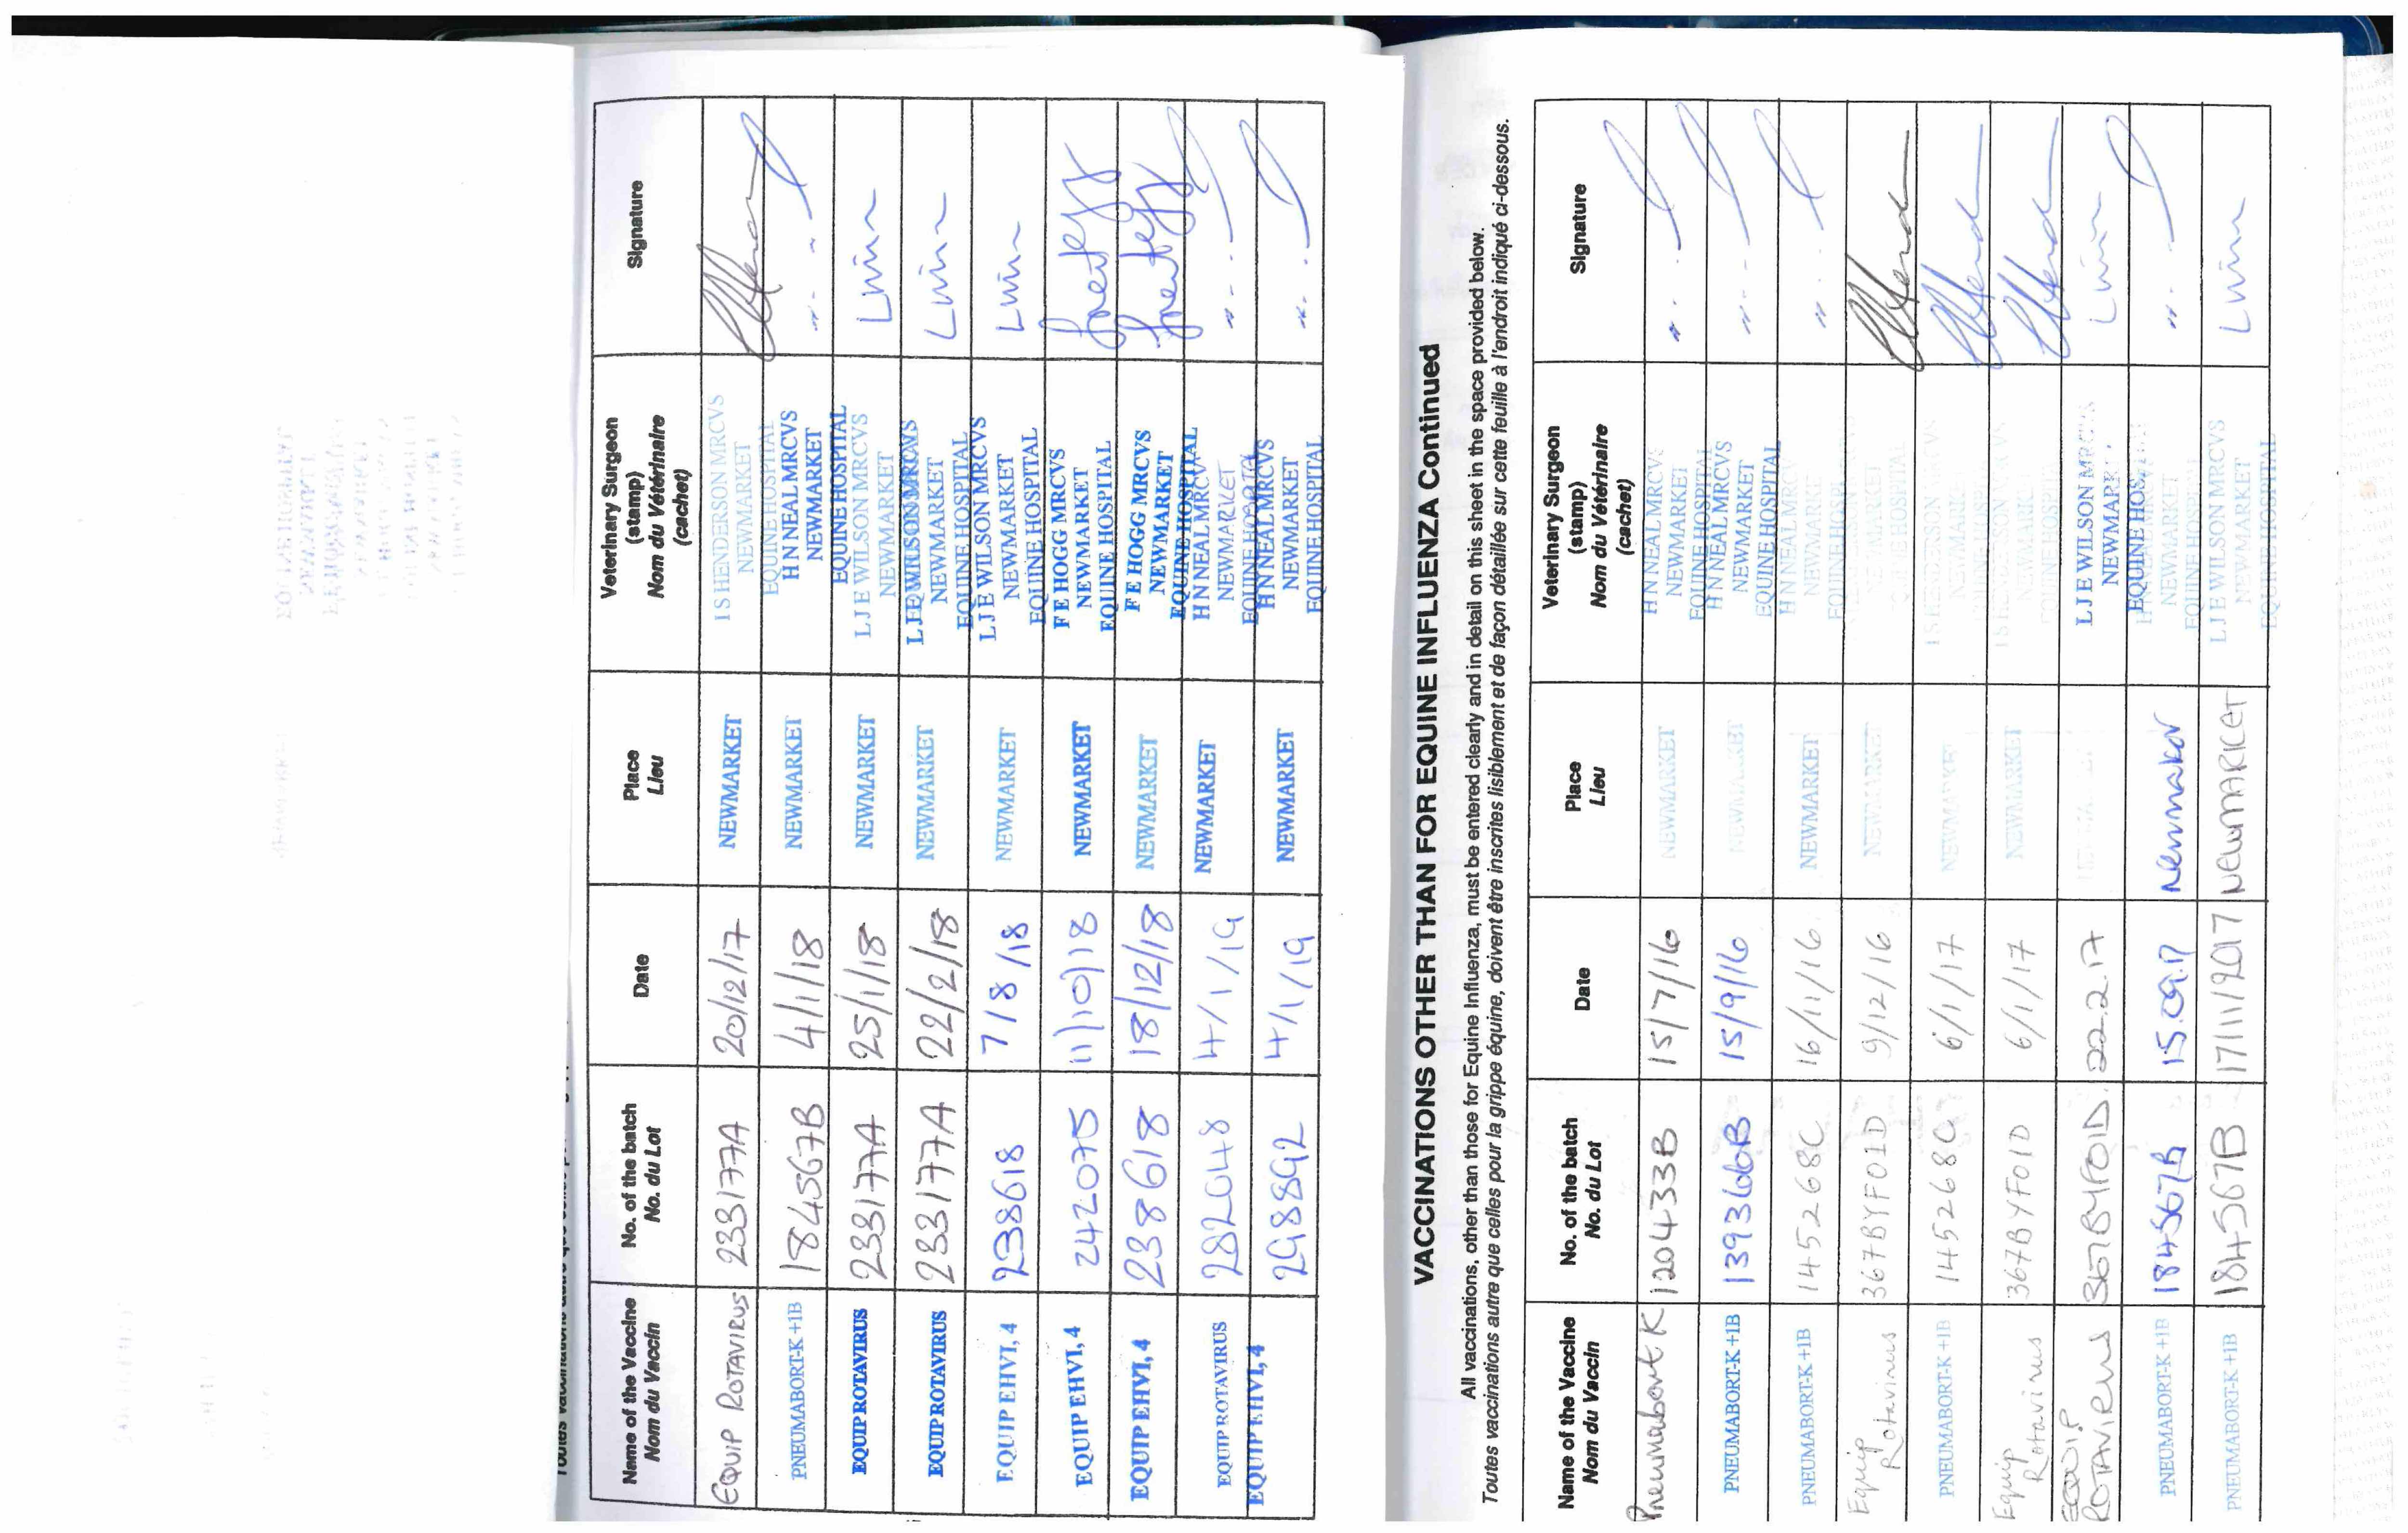 Name of the Vaccine
Nom du Vaccin
No. of the batch
No. du Lot
Date
Place
Lieu
Veterinary Surgeon
(stamp)
Nom du Vétérinaire
(cachet)
Signature
EQUIP ROTAVIRUS 233177A 20/12/17 NEWMARKET I S HENDERSON MRCVS
NEWMARKET
EQUINE HOSPITAL
PNEUMABORT-K +1B 184567B 4/1/18 NEWMARKET H N NEAL MRCVS
NEWMARKET
EQUINE HOSPITAL
EQUIP ROTAVIRUS 233177A 25/1/18 NEWMARKET L J E WILSON MRCVS
NEWMARKET
EQUIP ROTAVIRUS 233177A 22/2/18 NEWMARKET
NEWMARKET
EQUINE HOSPITAL
EQUIP EHV1, 4 238618 7/8/18 NEWMARKET L J E WILSON MRCVS
NEWMARKET
EQUINE HOSPITAL
EQUIP EHV1, 4 242075 11/10/18 NEWMARKET F E HOGG MRCVS
NEWMARKET
EQUINE HOSPITAL
EQUIP EHV1, 4 238618 18/12/18 NEWMARKET F E HOGG MRCVS
NEWMARKET
EQUINE HOSPITAL
EQUIP ROTAVIRUS 282048 4/1/19 NEWMARKET H N NEAL MRCVS
NEWMARKET
EQUINE HOSPITAL
EQUIP EHV1, 4 298892 4/1/19 NEWMARKET H N NEAL MRCVS
NEWMARKET
EQUINE HOSPITAL
VACCINATIONS OTHER THAN FOR EQUINE INFLUENZA Continued
All vaccinations, other than those for Equine Influenza, must be entered clearly and in detail on this sheet in the space provided below.
Toutes vaccinations autre que celles pour la grippe équine, doivent être inscrites lisiblement et de façon détaillée sur cette feuille à l'endroit indiqué ci-dessous.
Name of the Vaccine
Nom du Vaccin
No. of the batch
No. du Lot
Date
Place
Lieu
Veterinary Surgeon
(stamp)
Nom du Vétérinaire
(cachet)
Signature
Pneumabort K 120433B 15/7/16 NEWMARKET H N NEAL MRCVS
NEWMARKET
EQUINE HOSPITAL
PNEUMABORT-K +1B 139366B 15/9/16 NEWMARKET H N NEAL MRCVS
NEWMARKET
EQUINE HOSPITAL
PNEUMABORT-K +1B 145268C 16/11/16 NEWMARKET H N NEAL MRCV
NEWMARKET
EQUINE HOSP
Equip
Rotavirus 367BYF01D 9/12/16 NEWMARKET
PNEUMABORT-K +1B 145268C 6/1/17 NEWMARKET
Equip
Rotavirus 367BYF01D 6/1/17 NEWMARKET
EQUIP
ROTAVIRUS 367BYF01D. 22.2.17 L J E WILSON MRCVS
NEWMARK
EQUINE HOS
PNEUMABORT-K +1B 184567B 15.09.17 Newmarket
NEWMARKET
EQUINE HOSPI
PNEUMABORT-K +1B 184567B 17/11/2017 NEWMARKET L J E WILSON MRCVS
NEWMARKET
EQUINE HOSPITAL